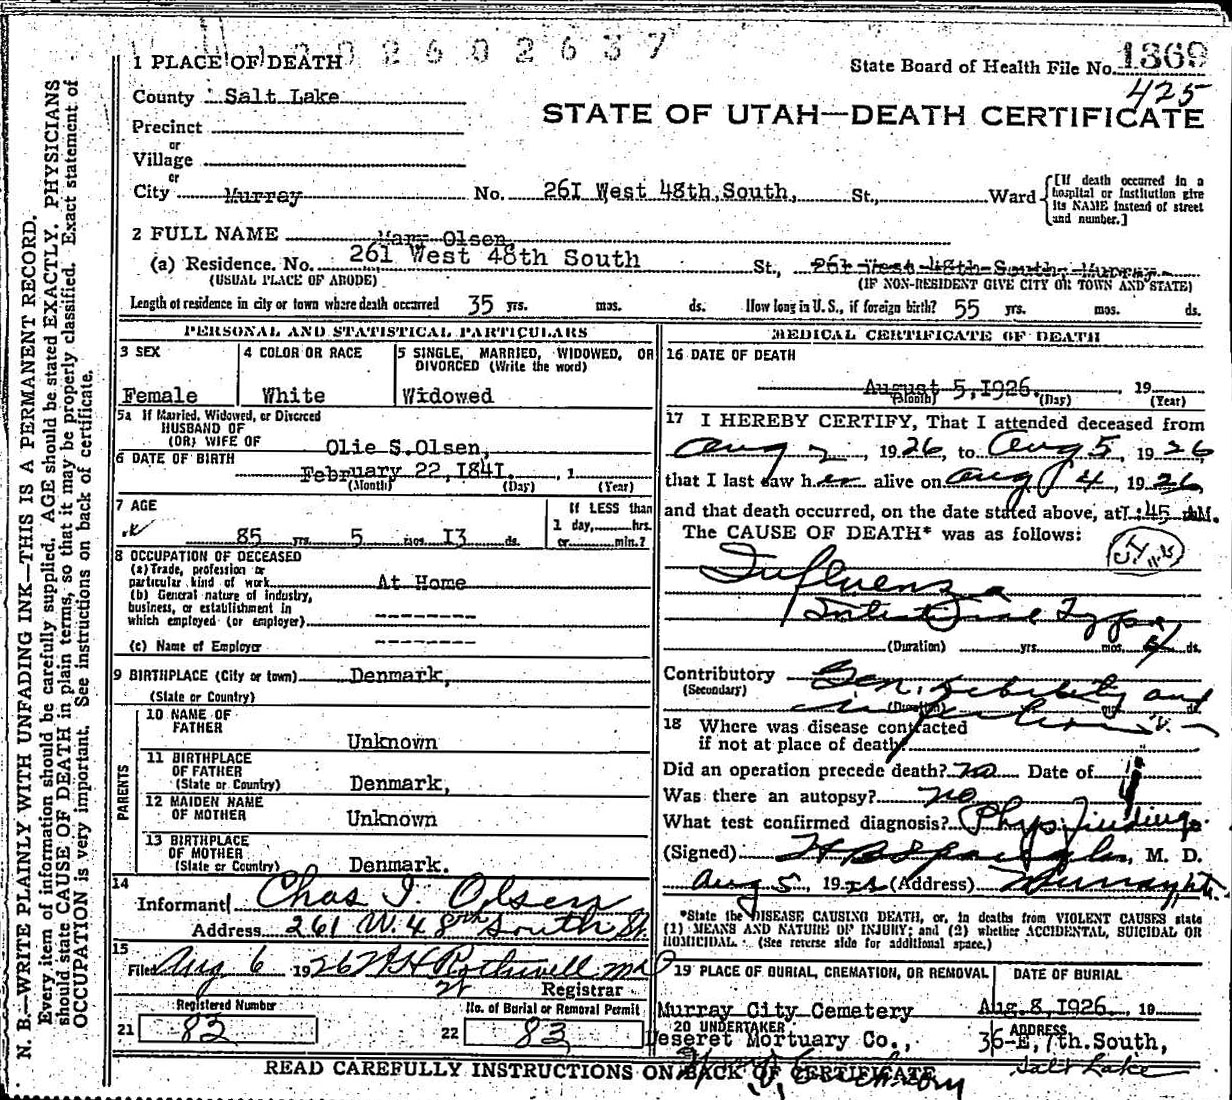 2602637
1 PLACE OF DEATH
State Board of Health File No. 1369
425
County Salt Lake
STATE OF UTAH—DEATH CERTIFICATE
Precinct
or
Village
or
City Murray No. 261 West 48th, South, St., Ward [If death occurred in a hospital or institution give its NAME instead of street and number.]
2 FULL NAME Mary Olsen,
(a) Residence. No. 261 West 48th South St., 261 West 48th South, Murray.
(USUAL PLACE OF ABODE) (IF NON-RESIDENT GIVE CITY OR TOWN AND STATE)
Length of residence in city or town where death occurred 35 yrs. mos. ds. How long in U. S., if foreign birth? 55 yrs. mos. ds.
N. B.—WRITE PLAINLY WITH UNFADING INK—THIS IS A PERMANENT RECORD.
Every item of information should be carefully supplied. AGE should be stated EXACTLY. PHYSICIANS
should state CAUSE OF DEATH in plain terms, so that it may be properly classified. Exact statement of
OCCUPATION is very important. See instructions on back of certificate.
PERSONAL AND STATISTICAL PARTICULARS
3 SEX 4 COLOR OR RACE 5 SINGLE, MARRIED, WIDOWED, OR
DIVORCED (Write the word)
Female White Widowed
5a If Married, Widowed, or Divorced
HUSBAND OF
(OR) WIFE OF Olie S.Olsen,
6 DATE OF BIRTH February 22,1841. , 1
(Month) (Day) (Year)
7 AGE If LESS than
1 day, hrs.
85 yrs. 5 mos. 13 ds. or min.?
8 OCCUPATION OF DECEASED
(a) Trade, profession or
particular kind of work At Home
(b) General nature of industry,
business, or establishment in
which employed (or employer) --------
(c) Name of Employer --------
9 BIRTHPLACE (City or town) Denmark,
(State or Country)
PARENTS
10 NAME OF
FATHER Unknown
11 BIRTHPLACE
OF FATHER
(State or Country) Denmark,
12 MAIDEN NAME
OF MOTHER Unknown
13 BIRTHPLACE
OF MOTHER
(State or Country) Denmark.
14
Informant Chas J. Olsen
Address 261 W. 48th South St.
15
Filed Aug 6 1926 Rothwell MD
Registrar
Registered Number No. of Burial or Removal Permit
21 82 22 83
MEDICAL CERTIFICATE OF DEATH
16 DATE OF DEATH
August 5,1926. 19
(Month) (Day) (Year)
17 I HEREBY CERTIFY, That I attended deceased from
Aug 2, 1926, to Aug 5, 1926
that I last saw her alive on Aug 4, 1926,
and that death occurred, on the date stated above, at 1:45 M.
The CAUSE OF DEATH* was as follows:
Influenza
Intestinal Type
(Duration) yrs. mos. ds.
Contributory Gen. debility and
(Secondary)
(Duration)
18 Where was disease contracted
if not at place of death?
Did an operation precede death? no Date of
Was there an autopsy? no
What test confirmed diagnosis? Phys. Findings.
(Signed) , M. D.
Aug 5, 19 (Address) Murray, Ut.
*State the DISEASE CAUSING DEATH, or, in deaths from VIOLENT CAUSES state
(1) MEANS AND NATURE OF INJURY; and (2) whether ACCIDENTAL, SUICIDAL OR
HOMICIDAL. (See reverse side for additional space.)
19 PLACE OF BURIAL, CREMATION, OR REMOVAL DATE OF BURIAL
Murray City Cemetery Aug.8,1926. 19
20 UNDERTAKER ADDRESS
Deseret Mortuary Co., 36-E, 7th. South,
Salt Lake
READ CAREFULLY INSTRUCTIONS ON BACK OF CERTIFICATE